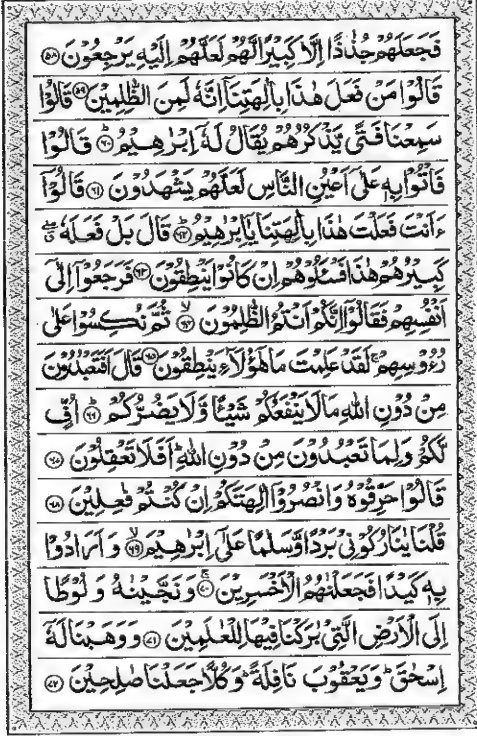 فَجَعَلَهُمْ جُذٰذًا اِلَّا كَبِیْرًا لَّهُمْ لَعَلَّهُمْ اِلَیْهِ یَرْجِعُوْنَ ﴿۵۸﴾
قَالُوْا مَنْ فَعَلَ هٰذَا بِاٰلِهَتِنَاۤ اِنَّهٗ لَمِنَ الظّٰلِمِیْنَ ﴿۵۹﴾ قَالُوْا
سَمِعْنَا فَتًی یَّذْكُرُهُمْ یُقَالُ لَهٗۤ اِبْرٰهِیْمُ ؕ﴿۶۰﴾ قَالُوْا
فَاْتُوْا بِهٖ عَلٰۤی اَعْیُنِ النَّاسِ لَعَلَّهُمْ یَشْهَدُوْنَ ﴿۶۱﴾ قَالُوْۤا
ءَاَنْتَ فَعَلْتَ هٰذَا بِاٰلِهَتِنَا یٰۤاِبْرٰهِیْمُ ؕ﴿۶۲﴾ قَالَ بَلْ فَعَلَهٗ ۖۗ
كَبِیْرُهُمْ هٰذَا فَسْـَٔلُوْهُمْ اِنْ كَانُوْا یَنْطِقُوْنَ ﴿۶۳﴾ فَرَجَعُوْۤا اِلٰۤی
اَنْفُسِهِمْ فَقَالُوْۤا اِنَّكُمْ اَنْتُمُ الظّٰلِمُوْنَ ۙ﴿۶۴﴾ ثُمَّ نُكِسُوْا عَلٰی
رُءُوْسِهِمْ ۚ لَقَدْ عَلِمْتَ مَا هٰۤؤُلَآءِ یَنْطِقُوْنَ ﴿۶۵﴾ قَالَ اَفَتَعْبُدُوْنَ
مِنْ دُوْنِ اللّٰهِ مَا لَا یَنْفَعُكُمْ شَیْـًٔا وَّ لَا یَضُرُّكُمْ ؕ﴿۶۶﴾ اُفٍّ
لَّكُمْ وَ لِمَا تَعْبُدُوْنَ مِنْ دُوْنِ اللّٰهِ ؕ اَفَلَا تَعْقِلُوْنَ ﴿۶۷﴾
قَالُوْا حَرِّقُوْهُ وَ انْصُرُوْۤا اٰلِهَتَكُمْ اِنْ كُنْتُمْ فٰعِلِیْنَ ﴿۶۸﴾
قُلْنَا یٰنَارُ كُوْنِیْ بَرْدًا وَّ سَلٰمًا عَلٰۤی اِبْرٰهِیْمَ ۙ﴿۶۹﴾ وَ اَرَادُوْا
بِهٖ كَیْدًا فَجَعَلْنٰهُمُ الْاَخْسَرِیْنَ ۚ﴿۷۰﴾ وَ نَجَّیْنٰهُ وَ لُوْطًا
اِلَی الْاَرْضِ الَّتِیْ بٰرَكْنَا فِیْهَا لِلْعٰلَمِیْنَ ﴿۷۱﴾ وَ وَهَبْنَا لَهٗۤ
اِسْحٰقَ ؕ وَ یَعْقُوْبَ نَافِلَةً ؕ وَ كُلًّا جَعَلْنَا صٰلِحِیْنَ ﴿۷۲﴾